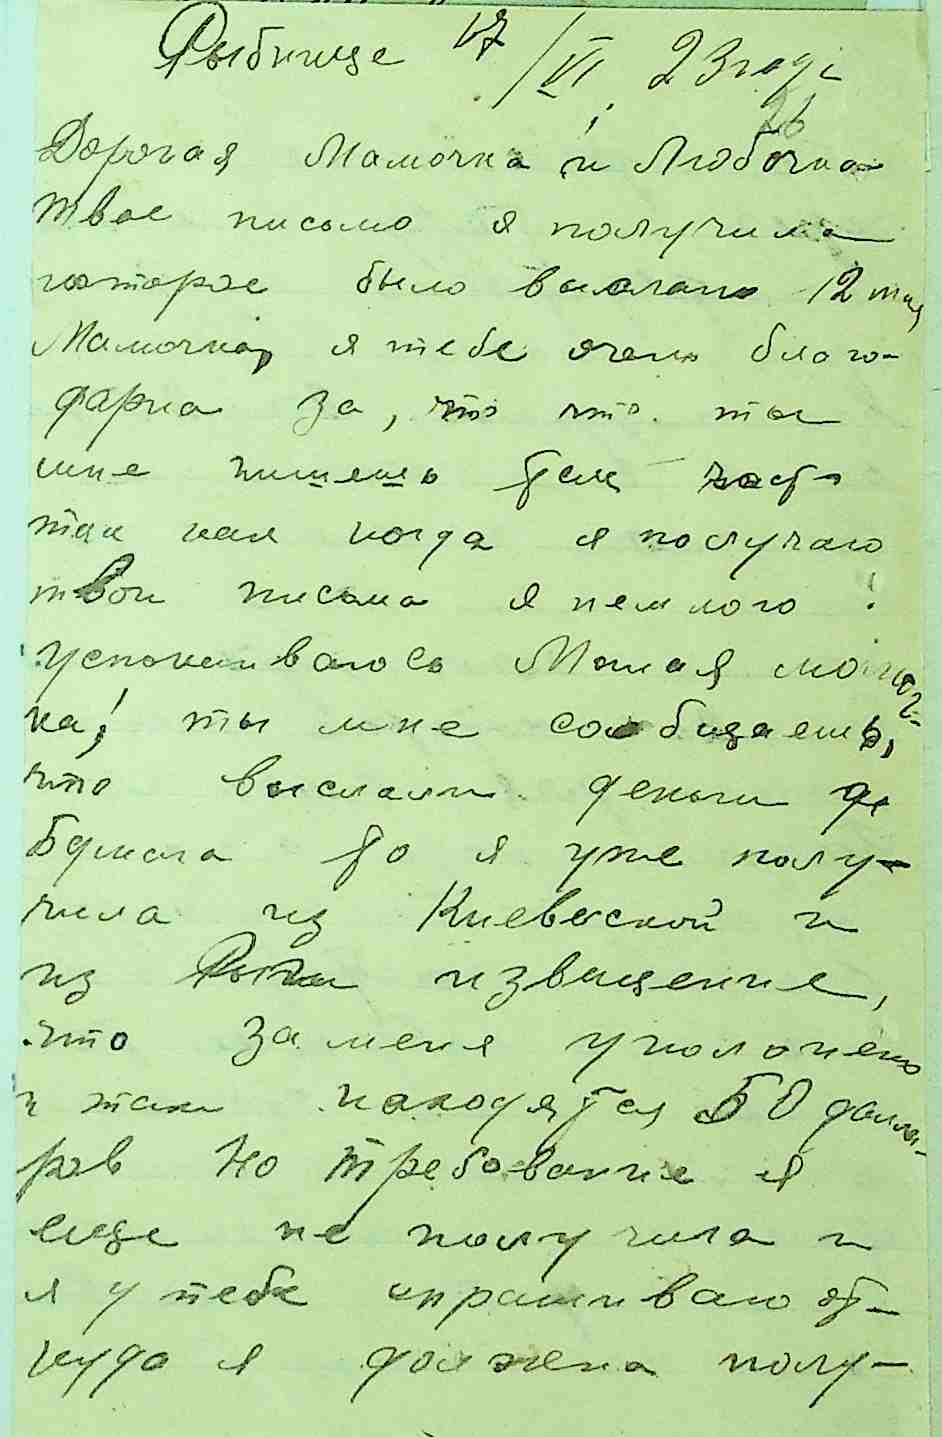 Рыбнице 17/VI 23 года
26
Дорогая Мамочка и Любочка
твое письмо я получила
которое было выслано 12 мая
Мамочка, я тебе очень благо-
дарна за, что что ты
мне пишешь так часто
так как когда я получаю
твои письма я немного
успокаиваюсь Милая мамоч-
ка! ты мне сообщаешь,
что выслали деньги
бумага я уже полу-
чила из Киевской и
из извещение,
что за меня уплочено
и там находятся 50 долла-
ров Но требование я
еще не получила и
я у тебе спрашиваю от-
куда я должена полу-